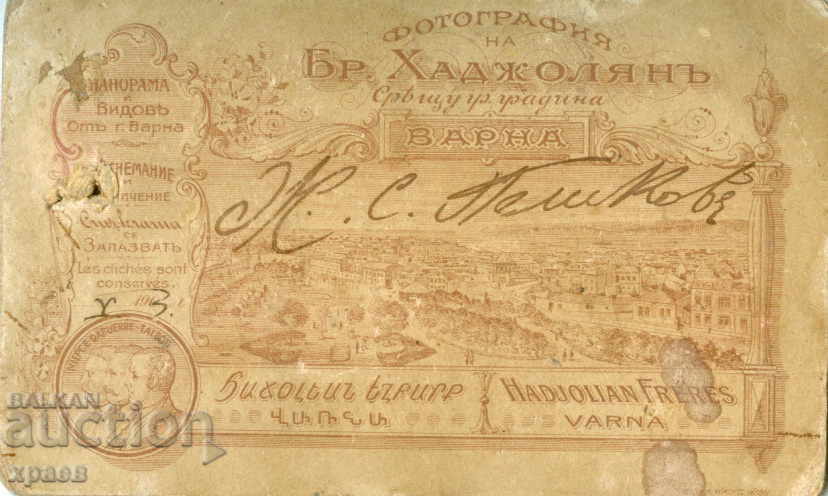 ФОТОГРАФИЯ
НА
БР. ХАДЖОЛЯНЪ
Срѣщу гр. градина
ВАРНА
ПАНОРАМА
И
ВИДОВЕ
Отъ г. Варна
СНЕМАНИЕ
И
Стъклата
СЕ
ЗАПАЗВАТЪ
Les clichés sont
conservés.
X 3.
Ж. С. Пешковъ
NIEPCE-DAGUERRE-TALBOT
ՀԱՃՕԼԵԱՆ ԵՂԲԱՐՔ
ՎԱՌՆԱ
HADJOLIAN FRÈRES
VARNA
BALKAN
auction
храев